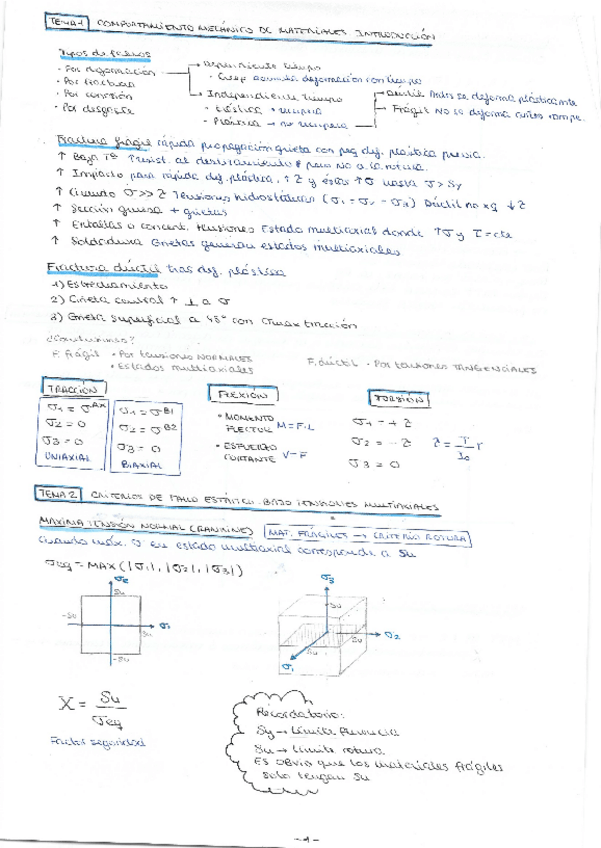 TEMA 1 COMPORTAMIENTO MECÁNICO DE MATERIALES INTRODUCCIÓN
Tipos de fallos
· Por deformación
Dependiente tiempo
· Creep aumenta deformación con tiempo
· Por fractura
· Por corrosión
Independiente tiempo
· Elástica → recupera
· Plástica → no recupera
Dúctil Antes se deforma plásticamente
Frágil No se deforma antes rompe.
· Por desgaste
Fractura frágil rápida propagación grieta con peq def. plástica previa.
↑ Baja Tª ↑ resist. al deslizamiento pero no a la rotura.
↑ Impacto para rápida def. plástica, ↑ τ y éstas ↑ σ hasta σ > Sy
↑ Cuando σ >> τ Tensiones hidrostáticas (σ1 = σ2 = σ3) Dúctil no xq ↓ τ
↑ Sección gruesa + grietas
↑ Entallas o concent. tensiones Estado multiaxial donde ↑σ y τ = cte
↑ Soldadura Grietas generan estados multiaxiales
Fractura dúctil tras def. plástica
1) Estrechamiento
2) Grieta central ↑ ⊥ a σ
3) Grieta superficial a 45° con τmax tracción
¿Conclusiones?
F. frágil · Por tensiones NORMALES
· Estados multiaxiales
F. dúctil · Por tensiones TANGENCIALES
TRACCIÓN
σ1 = σAX
σ2 = 0
σ3 = 0
UNIAXIAL
σ1 = σB1
σ2 = σB2
σ3 = 0
BIAXIAL
FLEXIÓN
· MOMENTO FLECTOR M = F·L
· ESFUERZO CORTANTE V = F
TORSIÓN
σ1 = +τ
σ2 = -τ
σ3 = 0
τ = T/J0 r
TEMA 2 CRITERIOS DE FALLO ESTÁTICO BAJO TENSIONES MULTIAXIALES
MÁXIMA TENSIÓN NORMAL (RANKINE) MAT. FRÁGILES → CRITERIO ROTURA
Cuando máx. σ en estado multiaxial corresponde a Su
σeq = MAX (|σ1|, |σ2|, |σ3|)
σ2
Su
-Su
Su
σ1
-Su
σ3
Su
σ2
Su
Su
σ1
X = Su/σeq
Factor seguridad
Recordatorio:
Sy → Límite fluencia
Su → Límite rotura
Es obvio que los materiales frágiles
solo tengan Su
-1-